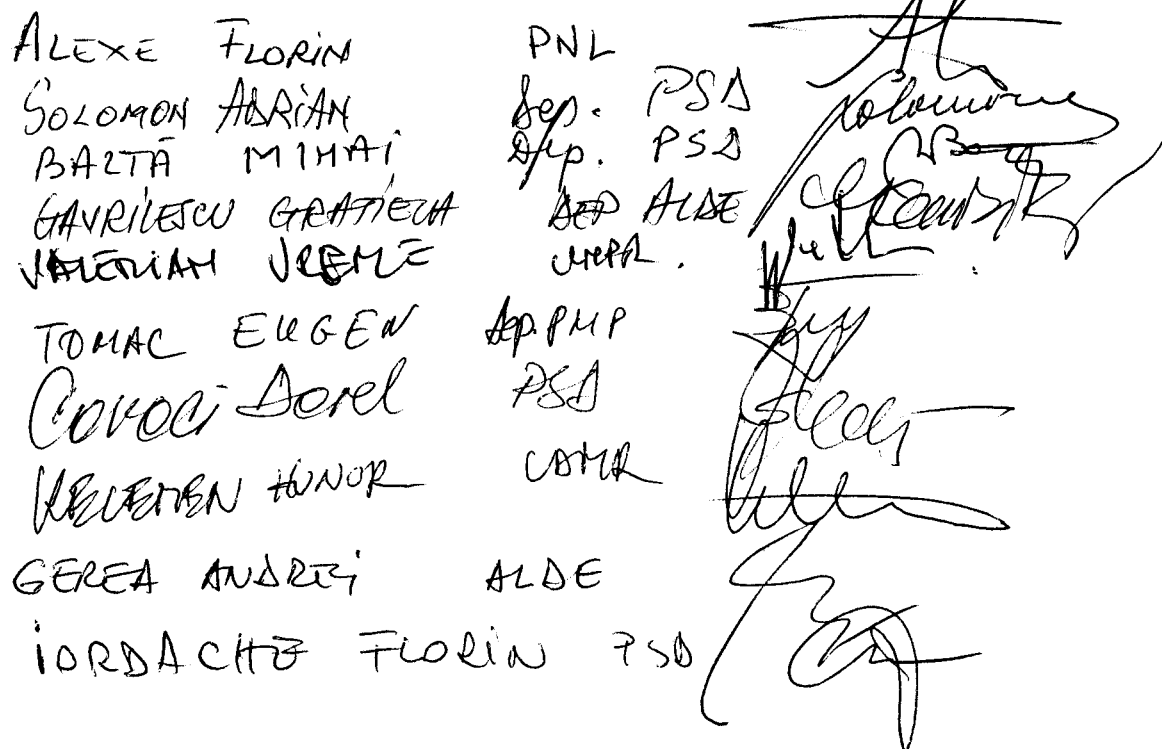 ALEXE FLORIN PNL
SOLOMON ADRIAN Dep. PSD
BALTĂ MIHAI Dep. PSD
GAVRILESCU GRAȚIELA DEP ALDE
VALERIAN VREME UNPR.
TOMAC EUGEN Dep. PMP
Covoci Dorel PSD
KELEMEN HUNOR UDMR
GEREA ANDREI ALDE
IORDACHE FLORIN PSD